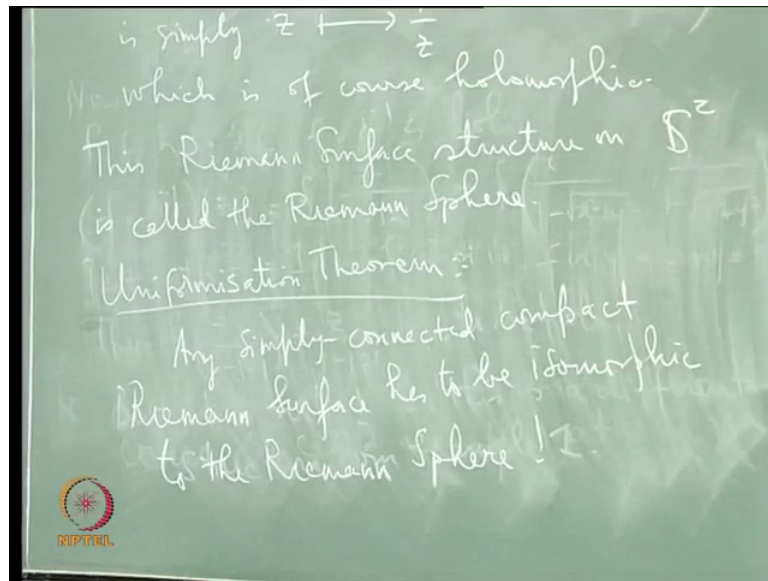 is simply z ⟼ 1/z
which is of course holomorphic.
This Riemann Surface structure on S²
is called the Riemann Sphere.
Uniformisation Theorem :-
Any simply-connected compact
Riemann Surface has to be isomorphic
to the Riemann Sphere!
NPTEL